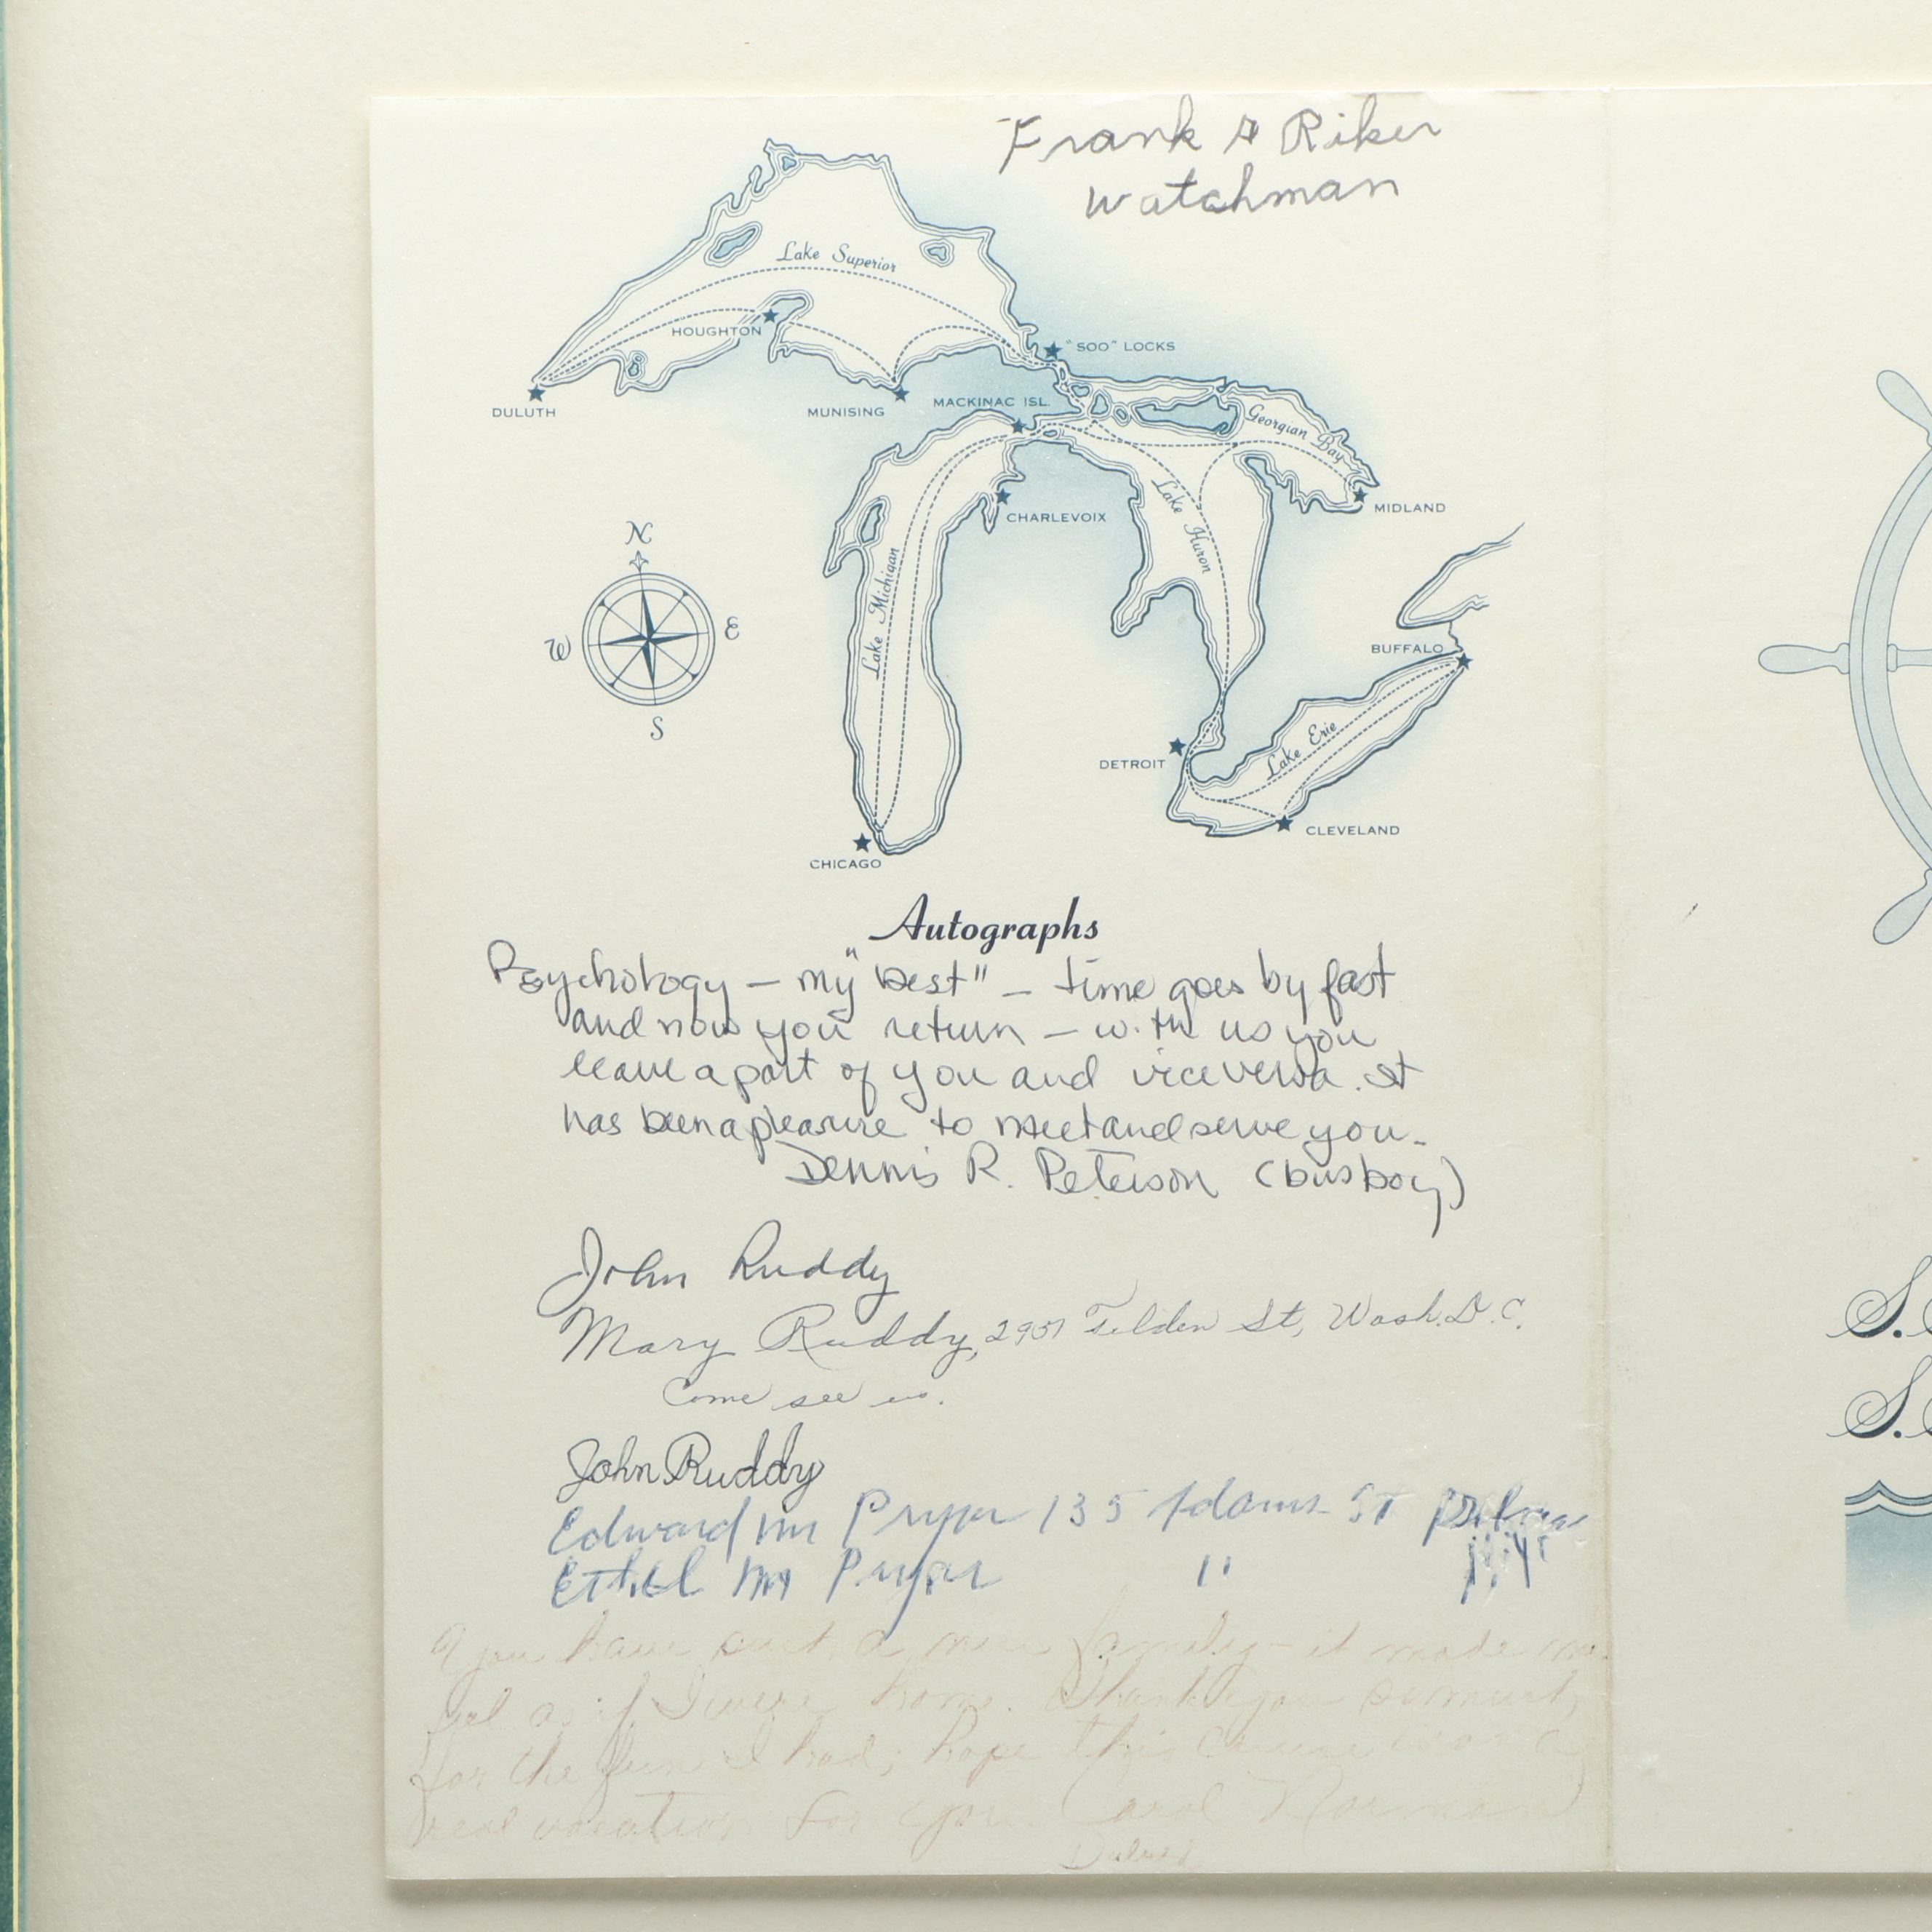 Frank A Riker
Watchman
Lake Superior
HOUGHTON
"SOO" LOCKS
DULUTH
MUNISING
MACKINAC ISL.
Georgian Bay
CHARLEVOIX
MIDLAND
Lake Huron
Lake Michigan
N
W
E
S
BUFFALO
Lake Erie
DETROIT
CLEVELAND
CHICAGO
Autographs
Psychology – my "best" – time goes by fast
and now you return – with us you
leave a part of you and vice versa. It
has been a pleasure to meet and serve you.
Dennis R. Peterson (busboy)
John Ruddy
Mary Ruddy, 2951 Tilden St, Wash. D.C.
Come see us.
John Ruddy
Edward M Pryor 135 Adams St
Ethel M Pryor "
You have such a nice family – it made me
feel as if I were home. Thank you so much
for the fun I had; hope this cruise was a
real vacation for you Carol Norman
S.
S.